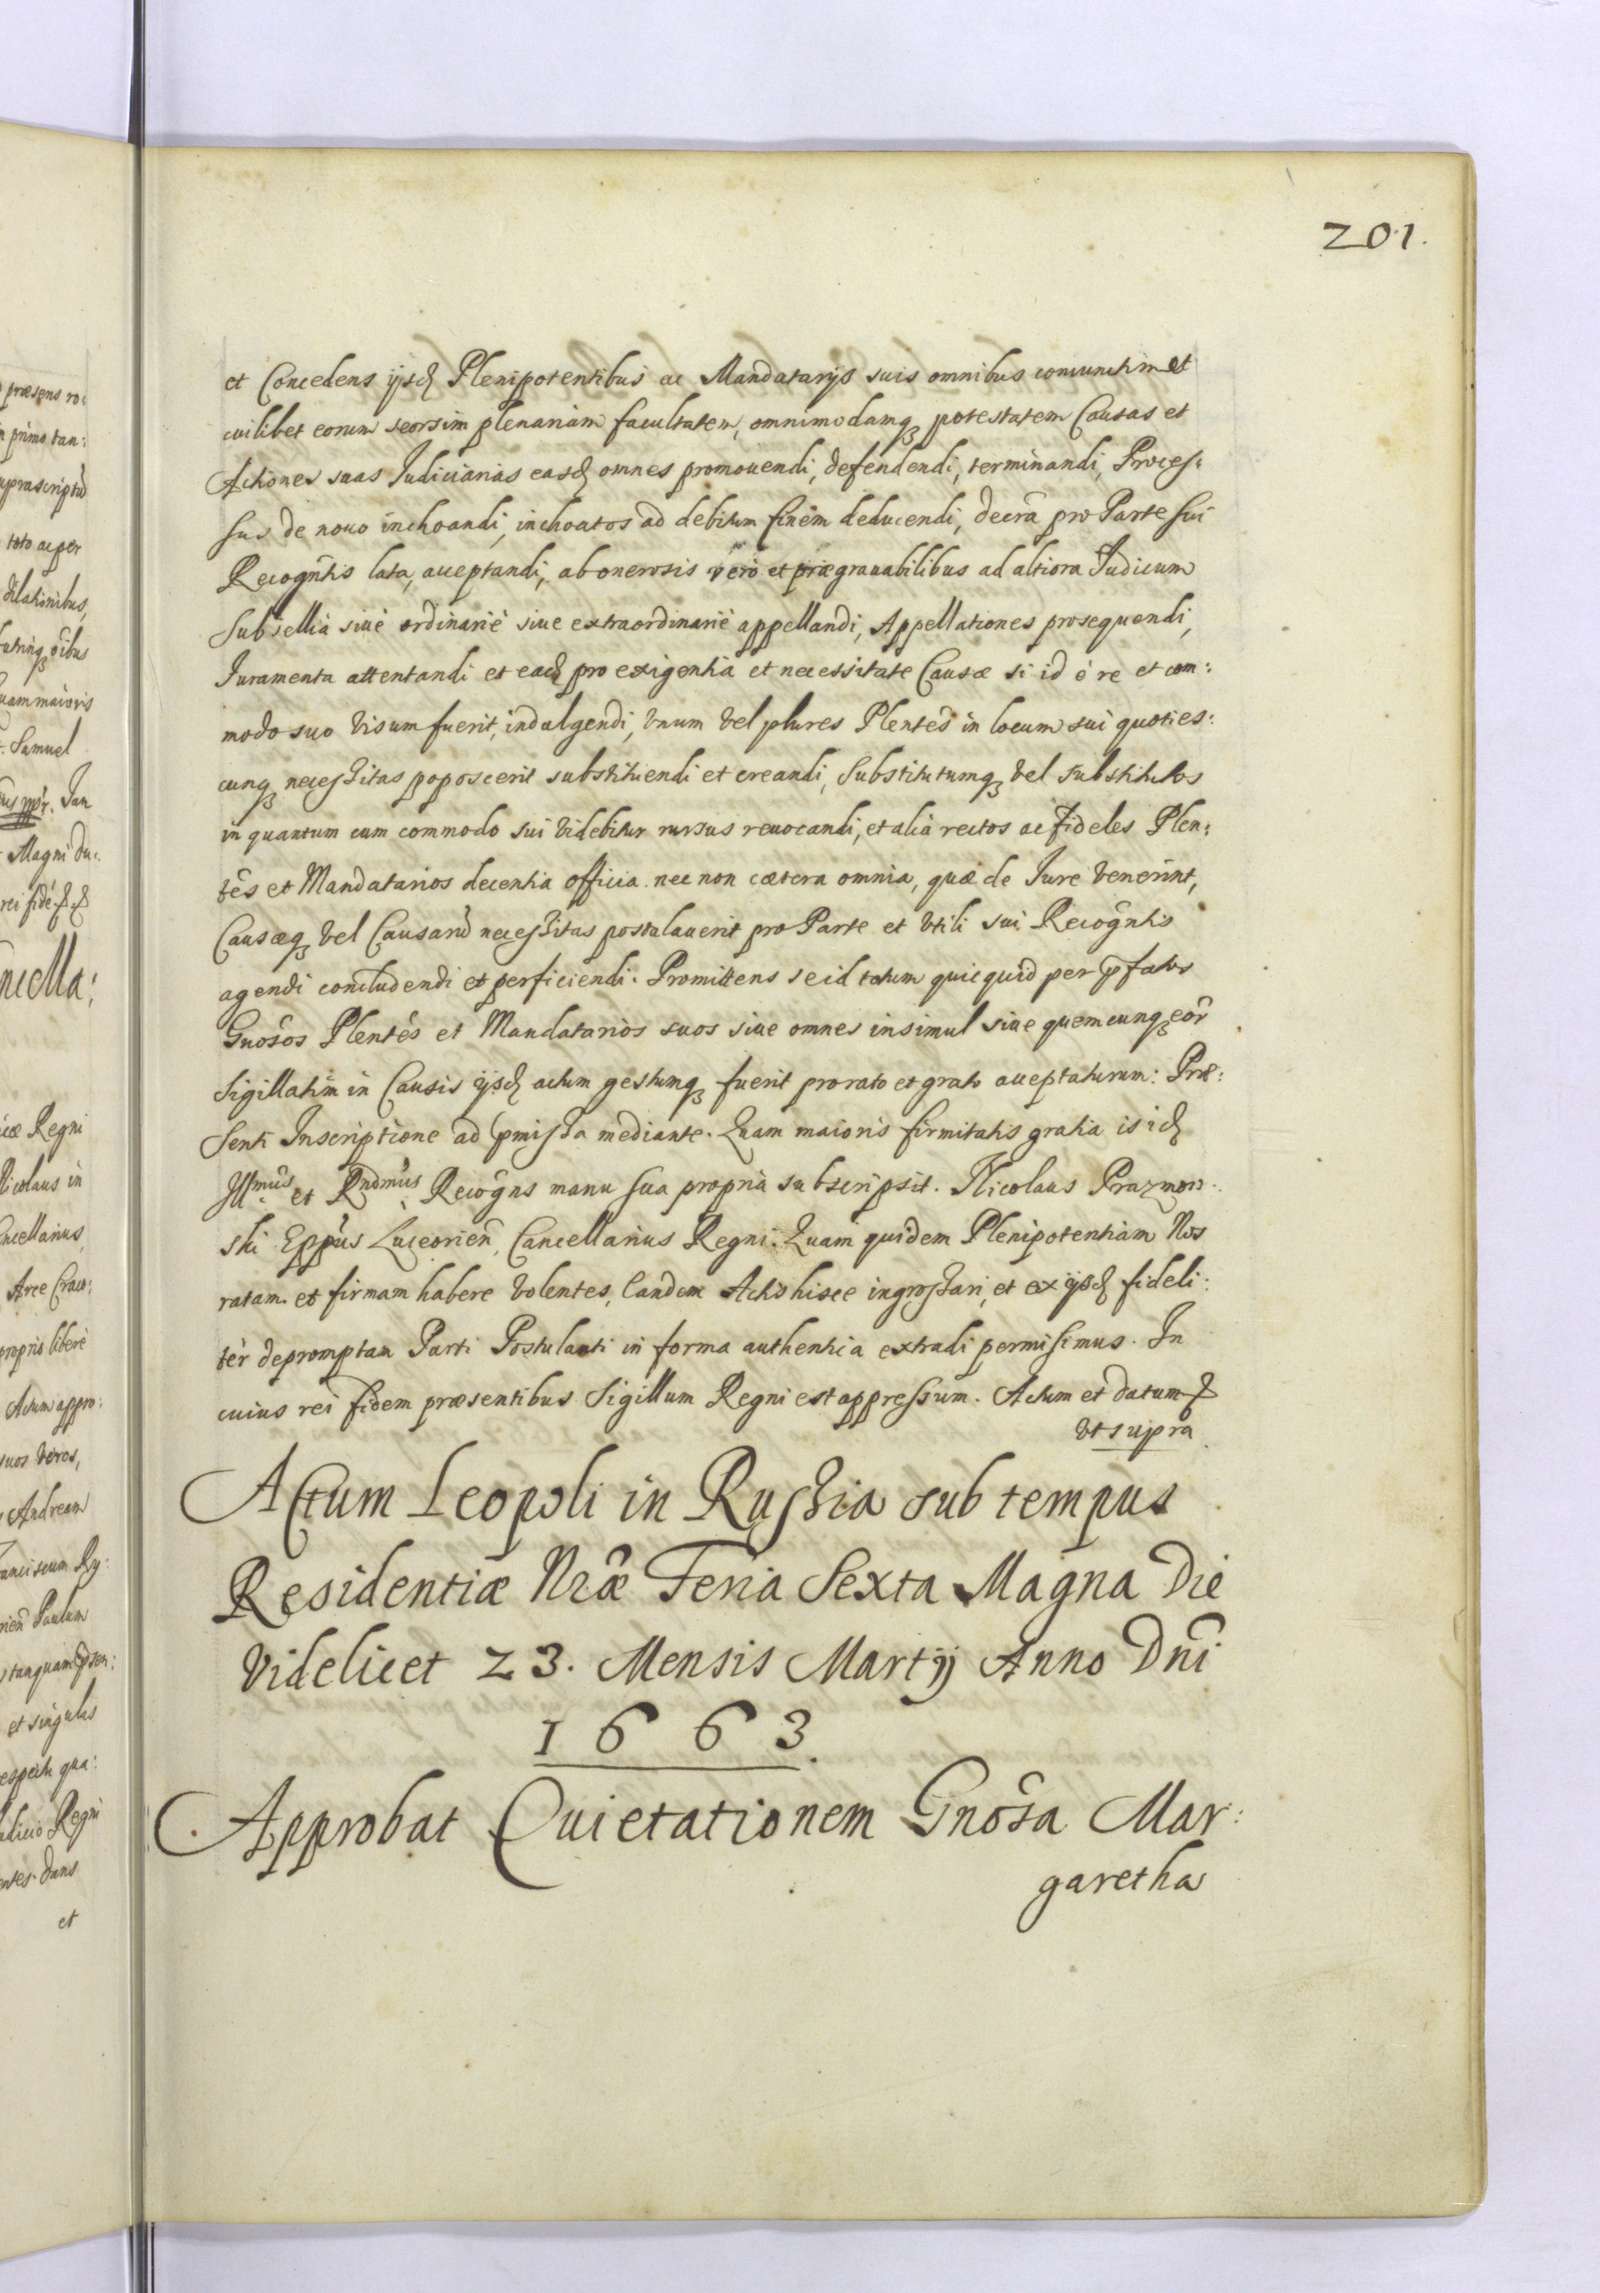 201.
et Concedens ijsd Plenipotentibus ac Mandatarijs suis omnibus coniunctim et
cuilibet eorum seorsim plenariam facultatem, omnimodamq potestatem Causas et
Actiones suas Iudiciarias easd omnes promouendi, defendendi, terminandi, Proces:
sus de nouo inchoandi, inchoatos ad debitum finem deducendi, decrã pro Parte sui
Recogñtis lata, acceptandi, ab onerosis verò et prægrauabilibus ad altiora Iudicum
Subsellia siuè ordinariè siue extraordinariè appellandi, Appellationes prosequendi,
Iuramenta attentandi et ead pro exigentia et necessitate Causæ si id è re et com:
modo suo visum fuerit, indulgendi, vnum vel plures Plentês in locum sui quoties:
cunq necessitas poposcerit substituendi et creandi, Substitutumq vel substitutos
in quantum cum commodo sui videbitur rursus reuocandi, et alià rectos ac fideles Plen:
tês et Mandatarios decentia officia nec non cætera omnia, quæ de Iure venerint,
Causæq vel Causarũ necessitas postulauerit pro Parte et vtili sui Recogñtis
agendi concludendi et perficiendi. Promittens se id totum quicquid per p̃fatos
Gnôsos Plentês et Mandatarios suos siue omnes insimul siue quemcunq eôr
sigillatim in Causis ijsd actum gestumq fuerit pro rato et grato acceptaturum: Præ:
senti Inscriptione ad p̃missa mediante. Quam maioris firmitatis gratia is id
Illmûs et Rndmûs Recogñs manu sua propria subscripsit. Nicolaus Prazmow:
ski Eppûs Luceorieñ, Cancellarius Regni. Quam quidem Plenipotentiam Nos
ratam et firmam habere volentes, Eandem Actis hisce ingrossari, et ex ijsd fideli:
tèr depromptam Parti Postulanti in forma authentica extradi permisimus. In
cuius rei fidem præsentibus Sigillum Regni est appressum. Actum et datum &
vt supra
Actum Leopoli in Russia sub tempus
Residentiæ Nræ Feria Sexta Magna Die
Videlicet 23. Mensis Martij Anno Dni
1663.
Approbat Quietationem Gnôsa Mar:
garetha